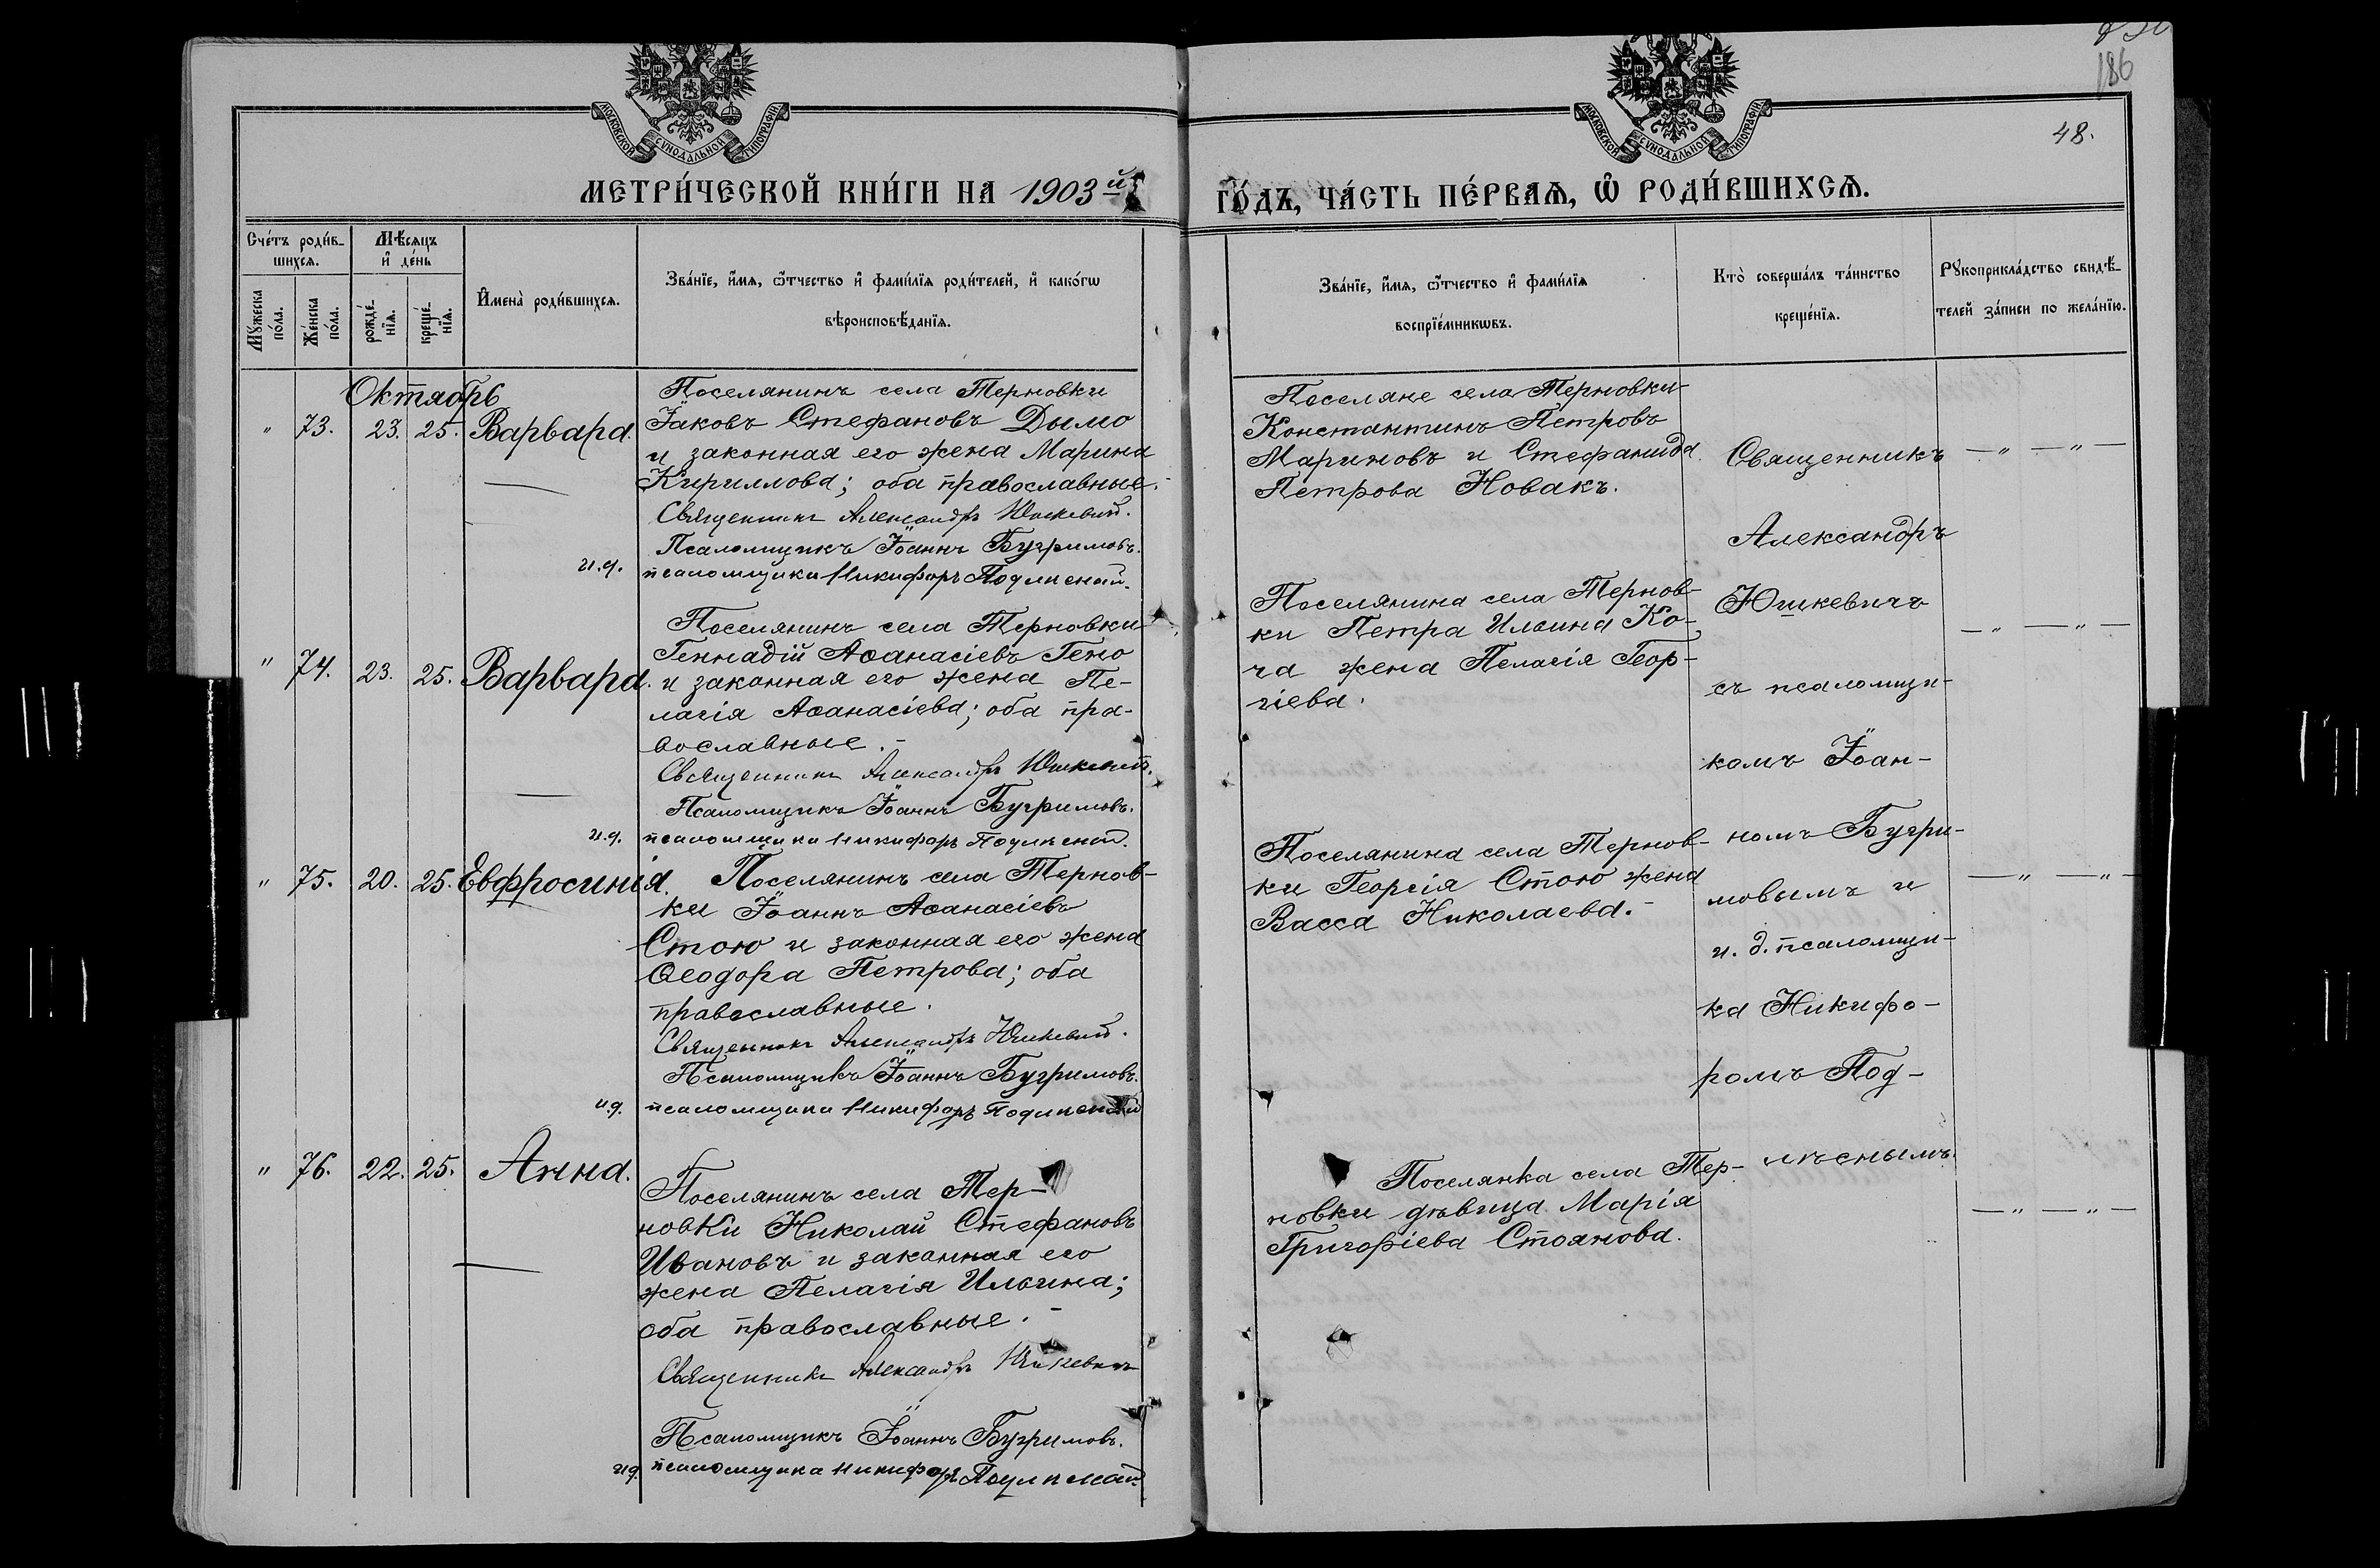 186
48.
МОСКОВСКОЙ СѴНОДАЛЬНОЙ ТИПОГРАФІИ
МОСКОВСКОЙ СѴНОДАЛЬНОЙ ТИПОГРАФІИ
МЕТРИ́ЧЕСКОЙ КНИ́ГИ НА 1903й
ГО́ДЪ, ЧА́СТЬ ПЕ́РВАѦ, Ѿ РОДИ́ВШИХСѦ.
Сче́тъ роди́в-
шихсѧ.
Мѣ́сяцъ
и҆ де́нь
Мꙋ́жеска
по́ла.
Же́нска
по́ла.
рожде́-
нїѧ.
креще́-
нїѧ.
И҆мена̀ роди́вшихсѧ.
Зва́нїе, и҆́мѧ, ѻ҆́тчество и҆ фами́лїѧ роди́телей, и҆ како́гѡ
вѣроисповѣ́данїѧ.
Зва́нїе, и҆́мѧ, ѻ҆́тчество и҆ фами́лїѧ
воспрїе́мникѡвъ.
Кто̀ соверша́лъ та́инство
креще́нїѧ.
Рꙋкоприкла́дство свидѣ́-
телей за́писи по жела́нїю.
Октябрь
" 73. 23. 25. Варвара.
Поселянинъ села Терновки
Іаковъ Стефановъ Дымо
и законная его жена Марина
Кириллова; оба православные.
Священникъ Александръ Юшкевичъ.
Псаломщикъ Іоаннъ Бугримовъ.
и.д. псаломщика Никифоръ Подлѣсный.
Поселяне села Терновки
Константинъ Петровъ
Мариновъ и Стефанида
Петрова Новакъ.
— " — " —
" 74. 23. 25. Варвара.
Поселянинъ села Терновки
Геннадій Аѳанасіевъ Гено
и законная его жена Пе-
лагія Аѳанасіева; оба пра-
вославные.-
Священникъ Александръ Юшкевичъ.
Псаломщикъ Іоаннъ Бугримовъ.
и.д. псаломщика Никифоръ Подлѣсный.
Поселянина села Тернов-
ки Петра Ильина Ко-
ча жена Пелагія Геор-
гіева.
— " — " —
" 75. 20. 25. Евфросинія.
Поселянинъ села Тернов-
ки Іоаннъ Аѳанасіевъ
Стою и законная его жена
Ѳеодора Петрова; оба
православные.
Священникъ Александръ Юшкевичъ.
Псаломщикъ Іоаннъ Бугримовъ.
и.д. псаломщика Никифоръ Подлѣсный
Поселянина села Тернов-
ки Георгія Стою жена
Васса Николаева.-
— " — " —
" 76. 22. 25. Анна.
Поселянинъ села Тер-
новки Николай Стефановъ
Ивановъ и законная его
жена Пелагія Ильина;
оба православные.-
Священникъ Александръ Юшкевичъ
Псаломщикъ Іоаннъ Бугримовъ.
и.д. псаломщика Никифоръ Подлѣсный
Поселянка села Тер-
новки дѣвица Марія
Григоріева Стоянова.
— " — " —
Священникъ
Александръ
Юшкевичъ
съ псаломщи-
комъ Іоан-
номъ Бугри-
мовымъ и
и. д. псаломщи-
ка Никифо-
ромъ Под-
лѣснымъ.